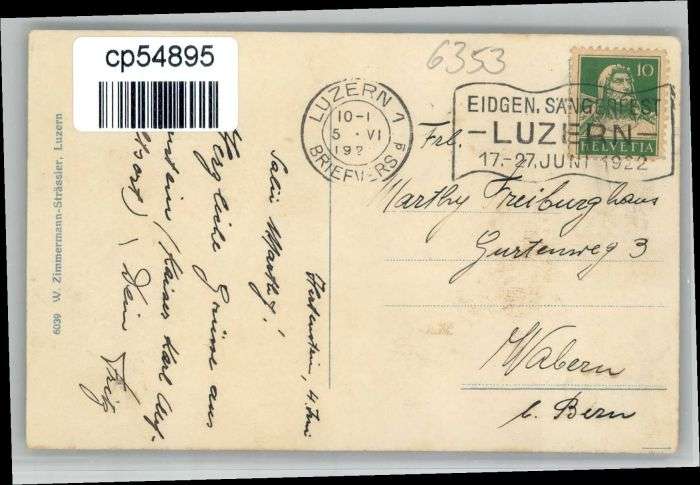 cp54895
6353
LUZERN 1
10-1
5. VI
192
BRIEFVERS
EIDGEN. SÄNGERFEST
-LUZERN-
17.-27. JUNI 1922
10
HELVETIA
Frl.
Marthy Freiburghaus
Gurtenweg 3
Wabern
b. Bern
Hertenstein, 4. Juni
Salü Marthy!
Herzliche Grüsse aus
(Kaiser Karl
Dein Fritz
6039 W. Zimmermann-Strässler, Luzern